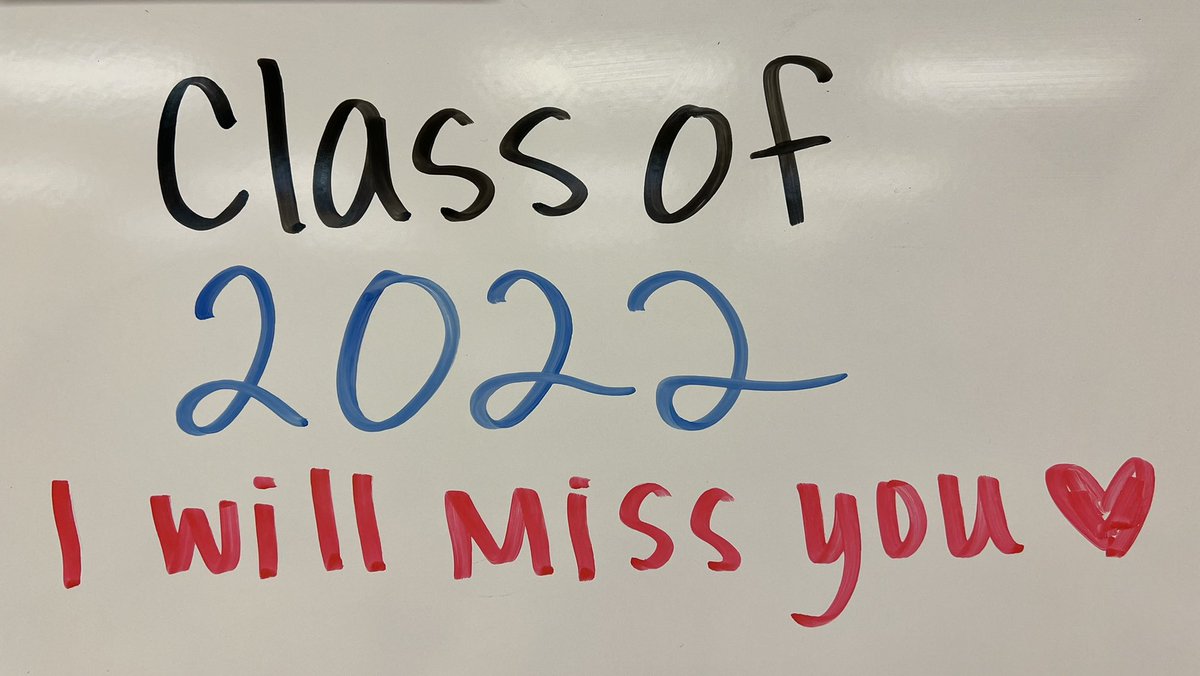 Class of
2022
I will miss you ♥